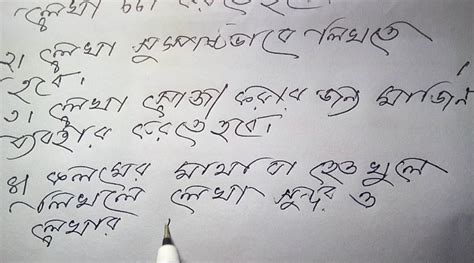 লেখা চর্চা করতে হবে।
২। লেখা সুস্পষ্টভাবে লিখতে
হবে।
৩। লেখা সোজা করার জন্য মার্জিন
ব্যবহার করতে হবে।
৪। কলমের মাথা বা হেড খুলে
লিখলে লেখা সুন্দর ও
লেখার